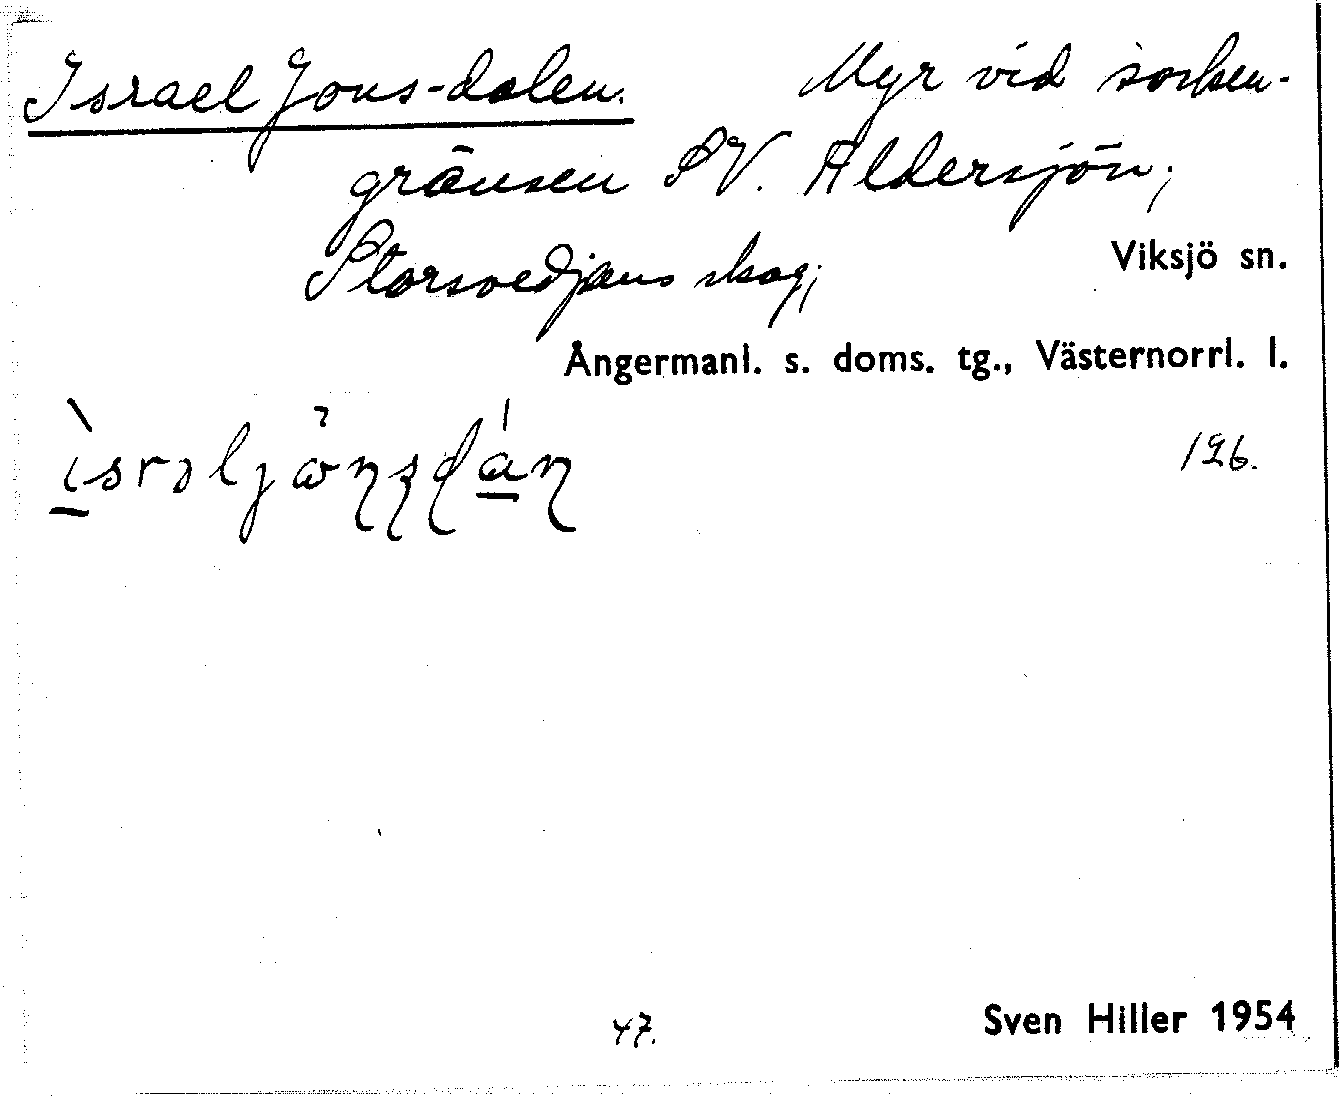 Israel Jons-dalen. Myr vid socken-
gränsen SV. Äldersjön;
Storsvedjans skog; Viksjö sn.
Ångermanl. s. doms. tg., Västernorrl. l.
126.
47. Sven Hiller 1954